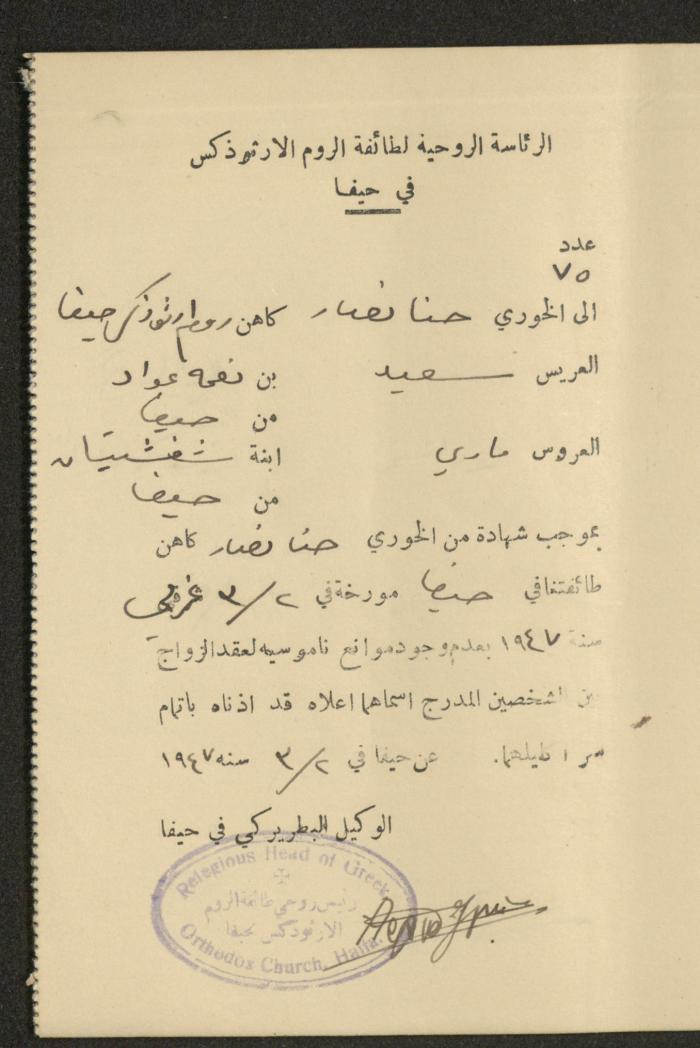 الرئاسة الروحية لطائفة الروم الارثوذكس
في حيفا
عدد
٧٥
الى الخوري حنا نصار كاهن روم ارثوذكس حيفا
العريس سعيد بن نعمه عواد
من حيفا
العروس ماري ابنة
من حيفا
بموجب شهادة من الخوري حنا نصار كاهن
طائفتنا في حيفا مورخة في ٢/٣ غربي
سنة ١٩٤٧ بعدم وجود موانع ناموسيه لعقد الزواج
بين الشخصين المدرج اسماهما اعلاه قد اذناه باتمام
سر اكليلهما. عن حيفا في ٢/٣ سنه ١٩٤٧
الوكيل البطريركي في حيفا
Relegious Head of Greek
رئيس روحي طائفة الروم
الارثوذكس بحيفا
Orthodox Church, Haifa.